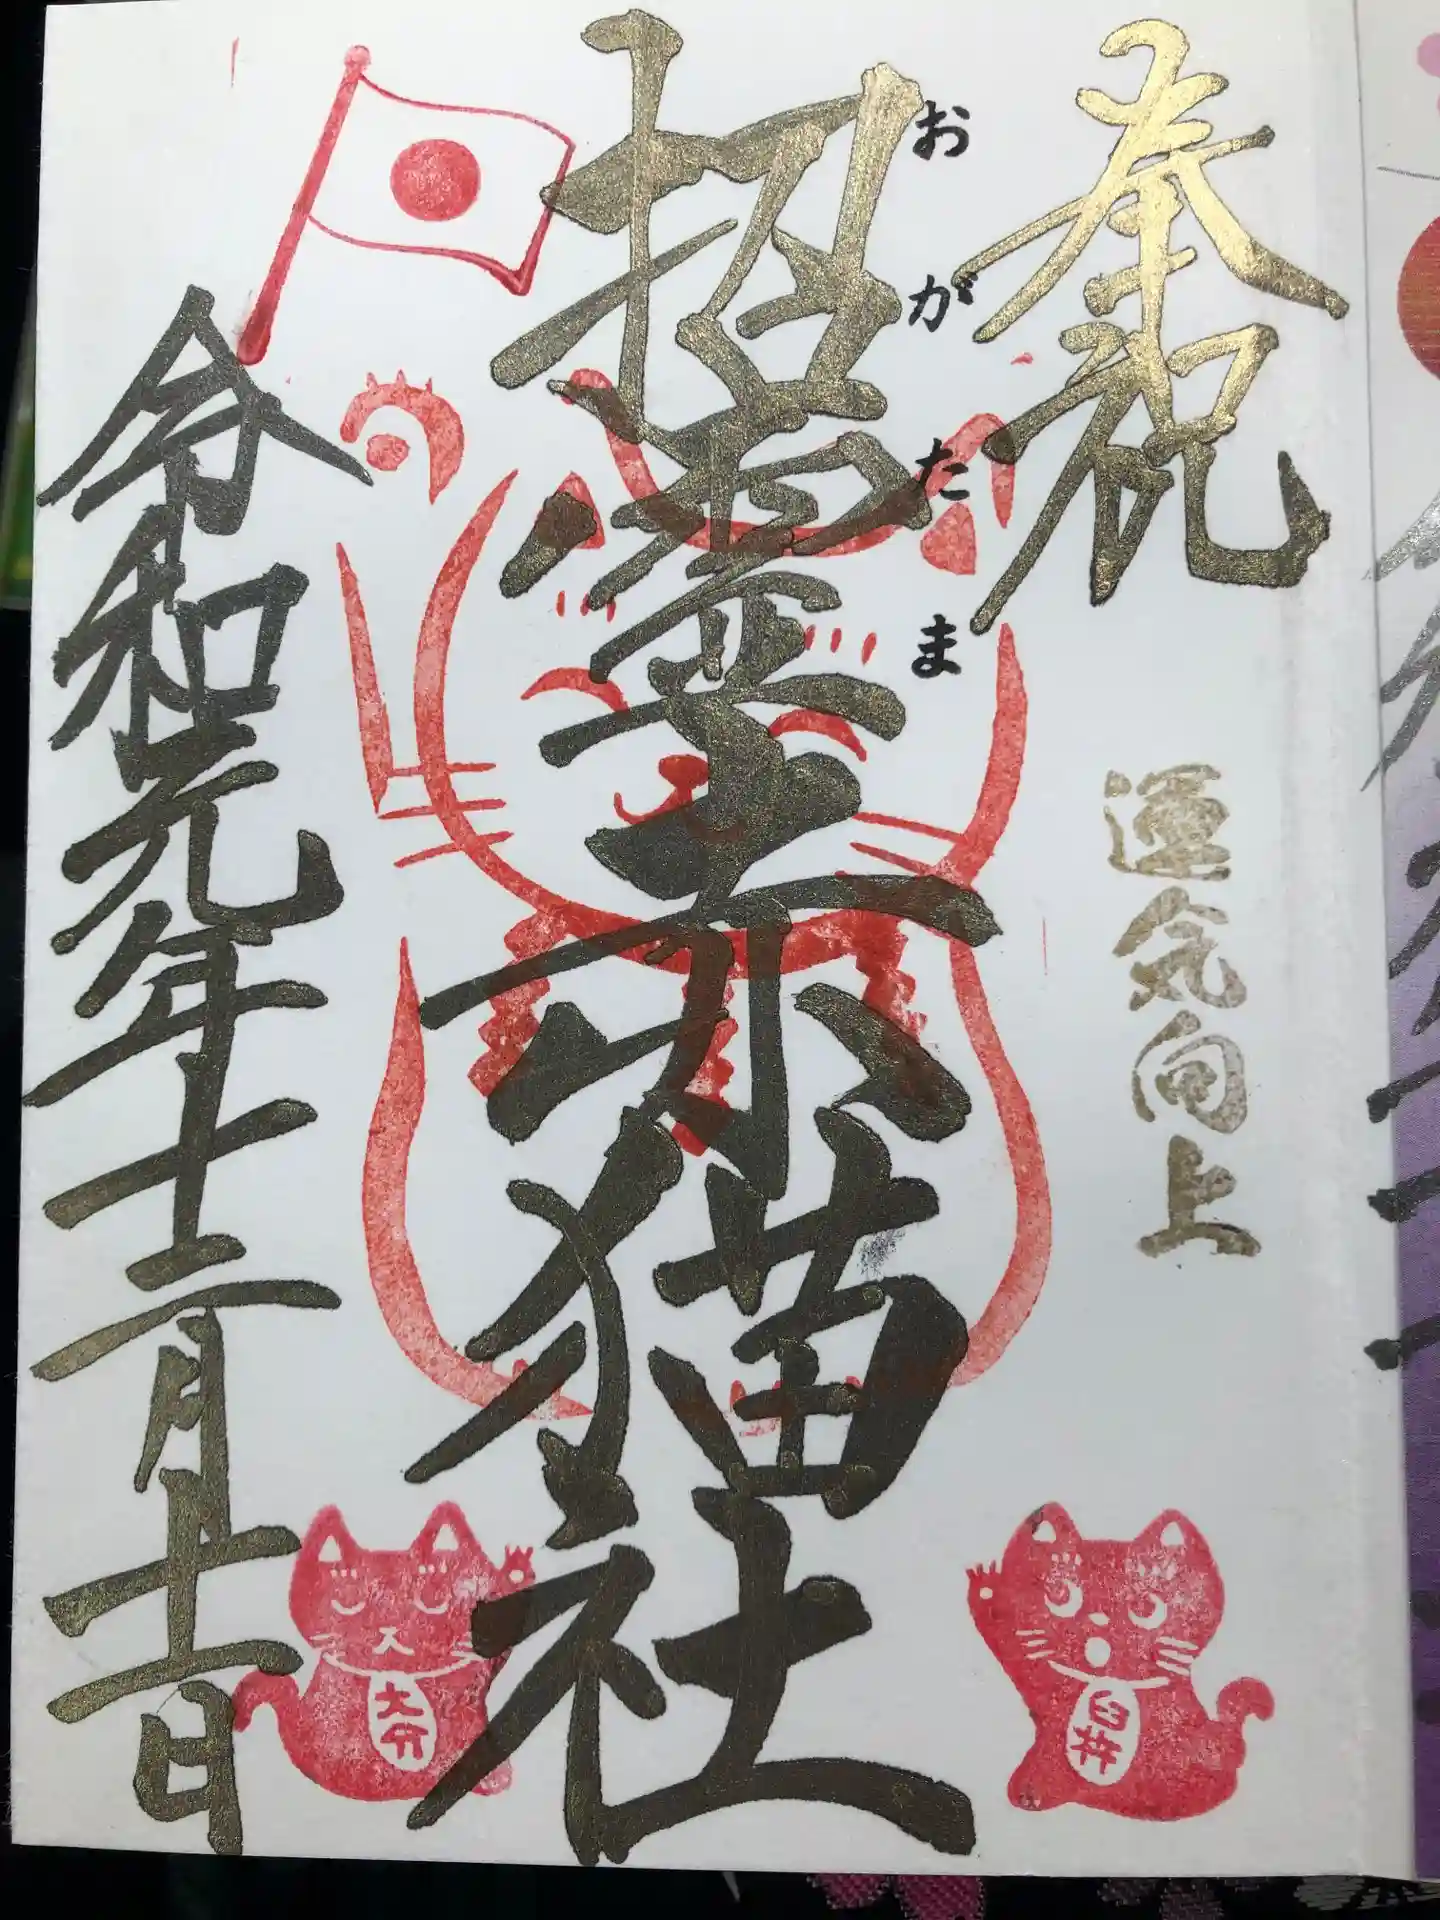 奉祝
運気向上
おがたま
招霊赤猫社
令和元年十二月十一日
臼杵
大分